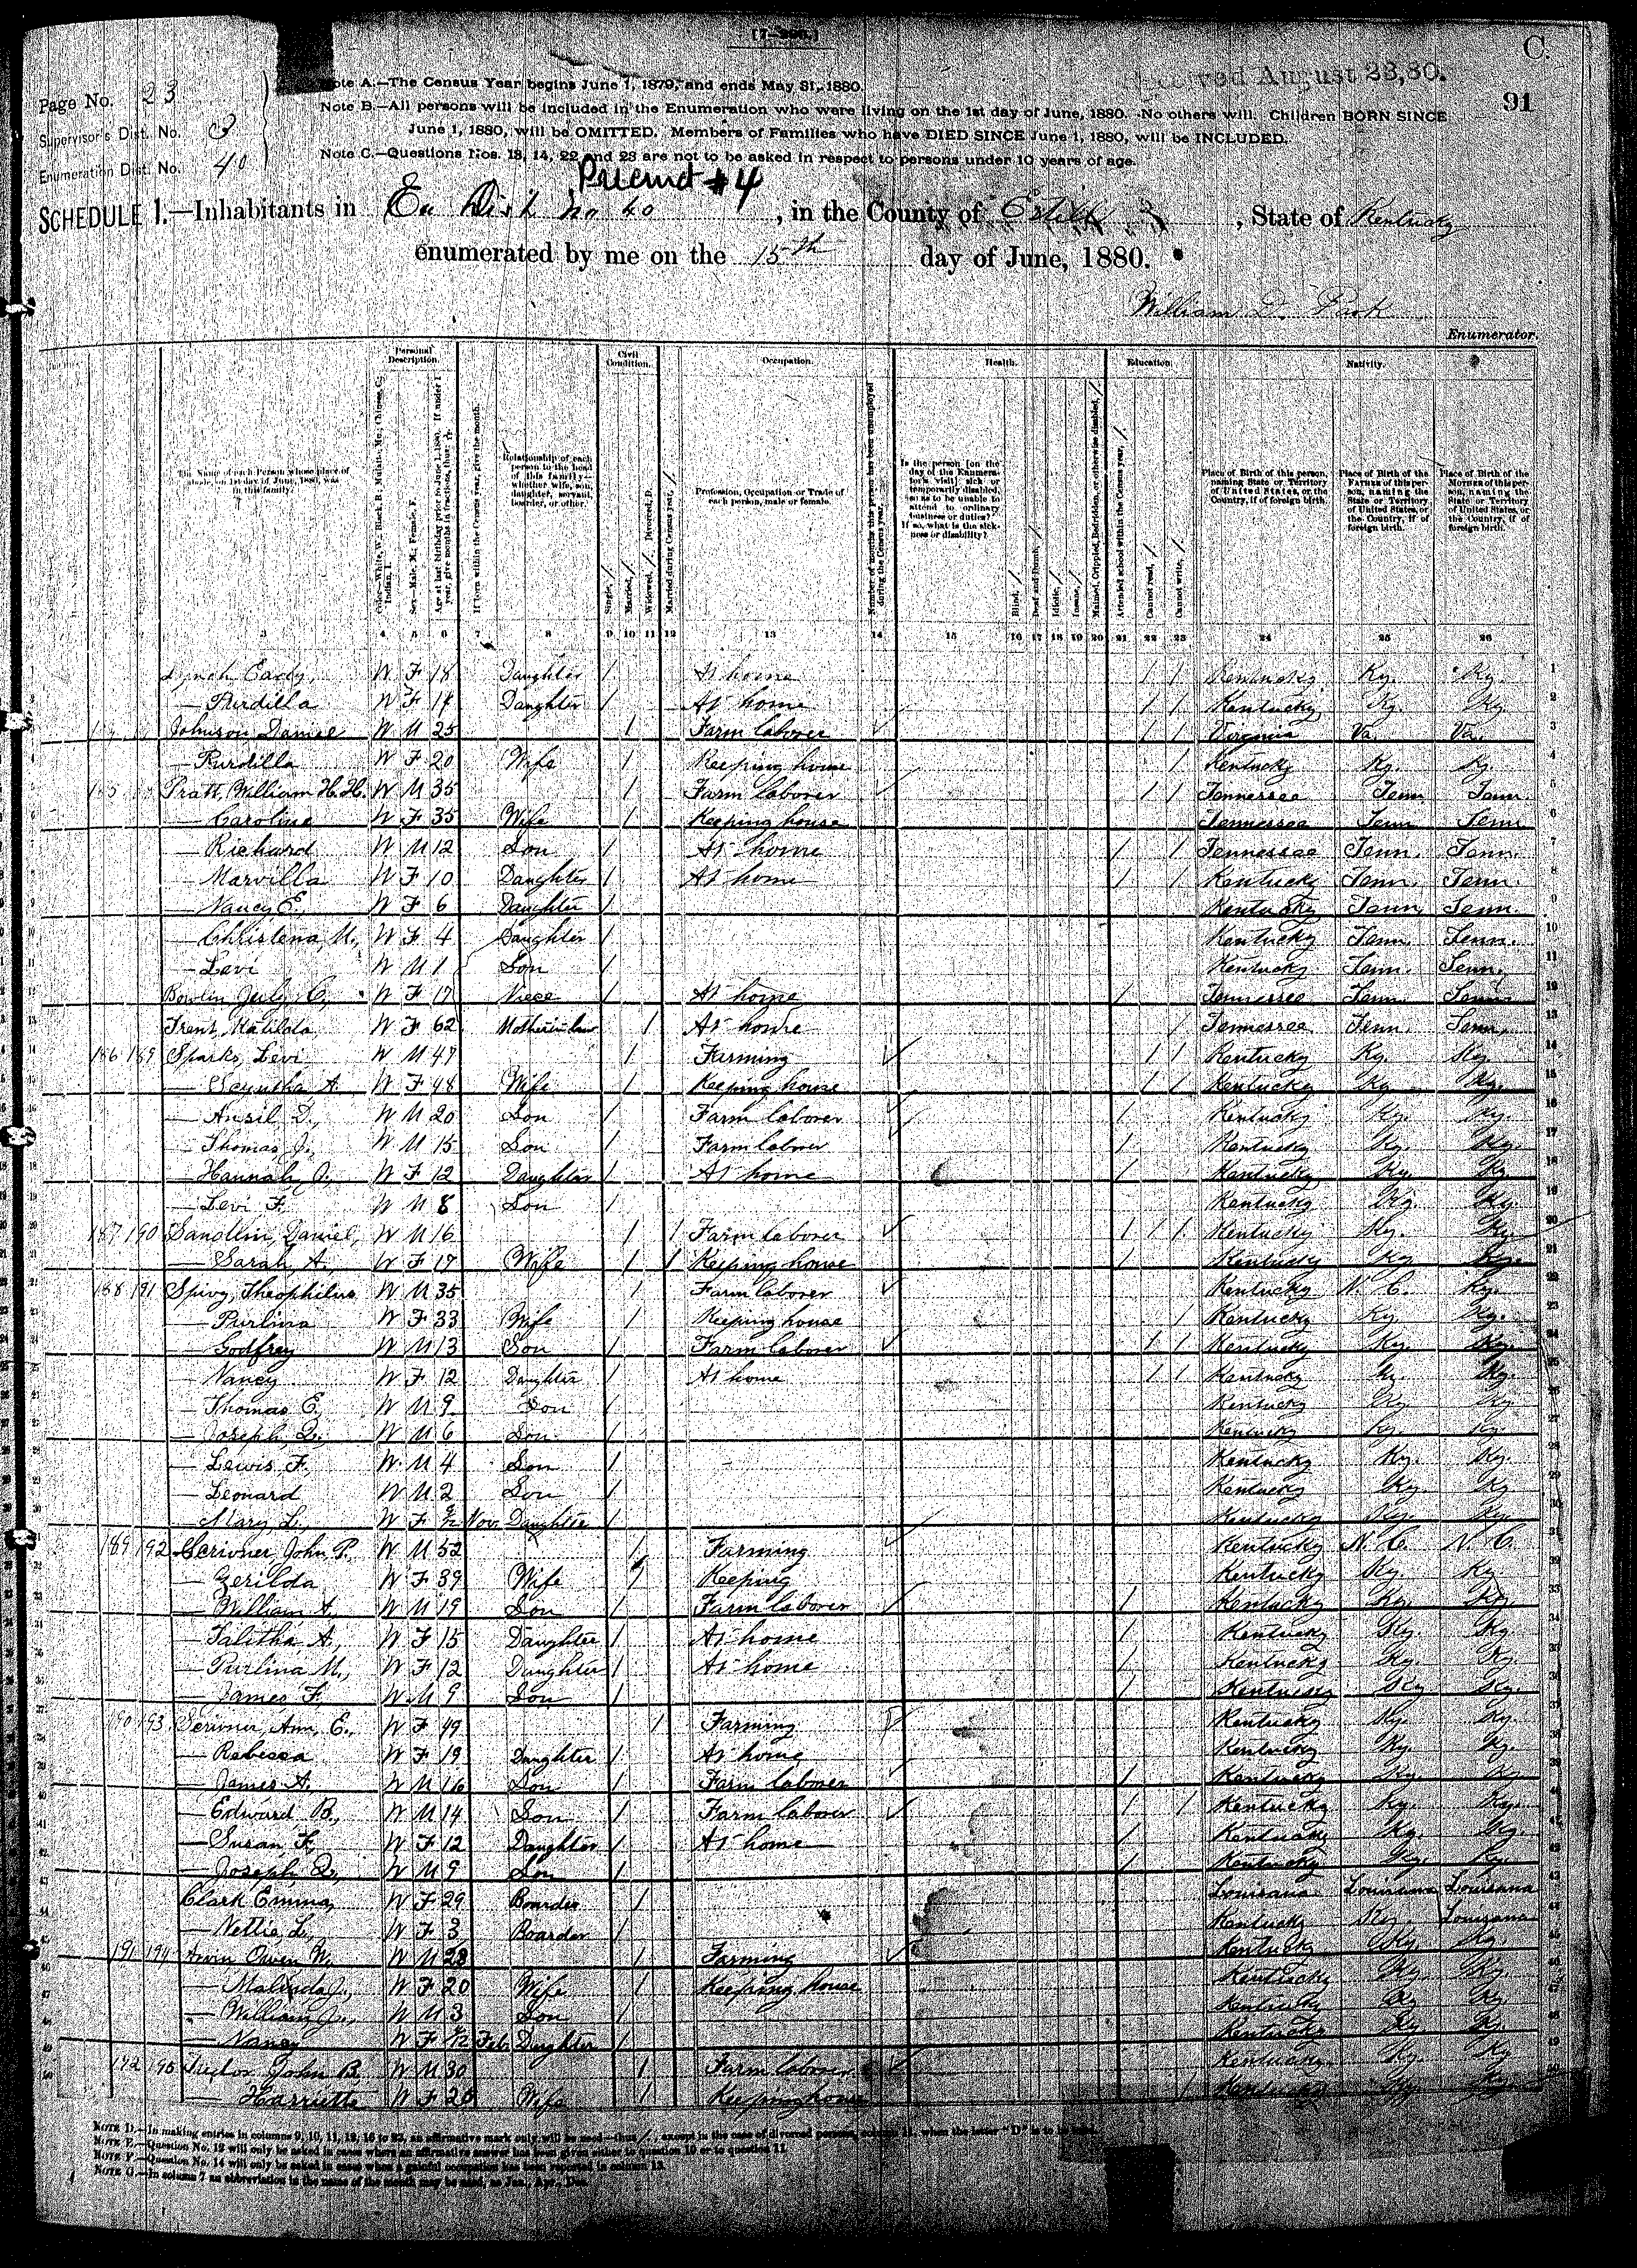 [7-296.]
C.
Note A.—The Census Year begins June 1, 1879, and ends May 31, 1880.
August 23, 80.
Page No. 23
Note B.—All persons will be included in the Enumeration who were living on the 1st day of June, 1880. No others will. Children BORN SINCE
91
Supervisor's Dist. No. 3
June 1, 1880, will be OMITTED. Members of Families who have DIED SINCE June 1, 1880, will be INCLUDED.
Enumeration Dist. No. 40
Note C.—Questions Nos. 13, 14, 22 and 23 are not to be asked in respect to persons under 10 years of age.
Precinct #4
SCHEDULE 1.—Inhabitants in En Dist No 40, in the County of Estill, State of Kentucky
enumerated by me on the 15th day of June, 1880.
William D. Park
Enumerator.
Personal Description. Civil Condition. Occupation. Health. Education. Nativity.
The Name of each Person whose place of abode, on 1st day of June, 1880, was in this family.
Relationship of each person to the head of this family—whether wife, son, daughter, servant, boarder, or other.
Profession, Occupation or Trade of each person, male or female.
Place of Birth of this person, naming State or Territory of United States, or the Country, if of foreign birth.
Place of Birth of the FATHER of this person, naming the State or Territory of United States, or the Country, if of foreign birth.
Place of Birth of the MOTHER of this person, naming the State or Territory of United States, or the Country, if of foreign birth.
3 4 5 6 7 8 9 10 11 12 13 14 15 16 17 18 19 20 21 22 23 24 25 26
Lynch W F 18 Daughter / At home / / Kentucky Ky. Ky.
— Purdilla W F 14 Daughter / At home / / Kentucky Ky. Ky
Johnson Daniel W M 25 / Farm laborer / / Virginia Va. Va.
— Purdilla W F 20 Wife / Keeping house / Kentucky Ky. Ky.
Pratt, William H.H. W M 35 / Farm laborer / / Tennessee Tenn Tenn.
— Caroline W F 35 Wife / Keeping house Tennessee Tenn Tenn
— Richard W M 12 Son / At home / / Tennessee Tenn. Tenn.
— Marvilla W F 10 Daughter / At home / / Kentucky Tenn. Tenn.
— Nancy E. W F 6 Daughter / Kentucky Tenn. Tenn.
— Christena M., W F 4 Daughter / Kentucky Tenn. Tenn.
— Levi W M 1 Son / Kentucky Tenn. Tenn.
Bowlin July C, W F 17 Niece / At home / Tennessee Tenn. Tenn
Trent, Matilda W F 62 Mother in law / At home / Tennessee Tenn. Tenn.
186 189 Sparks, Levi W M 47 / Farming / / Kentucky Ky. Ky.
— A. W F 48 Wife / Keeping house / / Kentucky Ky Ky.
— Ansil D., W M 20 Son / Farm laborer / Kentucky Ky. Ky.
— Thomas J., W M 15 Son / Farm labor / Kentucky Ky. Ky.
— Hannah J. W F 12 Daughter / At home / Kentucky Ky. Ky
— Levi F. W M 8 Son / Kentucky Ky. Ky.
187 190 Sandlin, Daniel, W M 16 / / Farm laborer / / / Kentucky Ky. Ky.
— Sarah A., W F 17 Wife / / Keeping house / Kentucky Ky Ky.
188 191 Spivy, Theophilus W M 35 / Farm laborer Kentucky N. C. Ky.
— Purlina W F 33 Wife / Keeping house / Kentucky Ky. Ky.
— Godfrey W M 13 Son / Farm laborer / / Kentucky Ky. Ky.
— Nancy W F 12 Daughter / At home / / Kentucky Ky. Ky.
— Thomas E. W M 9 Son / Kentucky Ky Ky.
— Joseph, W M 6 Son / Kentucky Ky. Ky.
— Lewis F., W M 4 Son / Kentucky Ky. Ky.
— Leonard W M 2 Son / Kentucky Ky. Ky
— Mary L., W F Nov. Daughter / Kentucky Ky. Ky.
189 192 Scrivner, John P. W M 52 / Farming Kentucky N. C. N. C.
— Zerilda W F 39 Wife / Keeping Kentucky Ky. Ky.
— William A. W M 19 Son / Farm laborer / Kentucky Ky. Ky
— Talitha A., W F 15 Daughter / At home / Kentucky Ky. Ky.
— Purlina M., W F 12 Daughter / At home / Kentucky Ky. Ky.
— James F. W M 9 Son / / Kentucky Ky Ky.
190 193 Scrivner, Ann, E., W F 49 / Farming Kentucky Ky. Ky.
— Rebecca W F 19 Daughter / At home Kentucky Ky. Ky.
— James A. W M 16 Son / Farm laborer / Kentucky Ky. Ky
— Edward B., W M 14 Son / Farm laborer / / Kentucky Ky. Ky.
— Susan F., W F 12 Daughter / At home / Kentucky Ky. Ky.
— Joseph, W M 9 Son / / Kentucky Ky. Ky.
Clark Emma, W F 29 Boarder / Louisana Louisana Louisana
— Nettie L., W F 3 Boarder / Kentucky Ky. Louisana
191 194 Arvin Owen W. W M 28 / Farming Kentucky Ky. Ky.
— Malinda J., W F 20 Wife / Keeping house Kentucky Ky Ky.
— William J., W M 3 Son / Kentucky Ky Ky
— Nancy W F Feb. Daughter / Kentucky Ky. Ky.
192 195 John B. W M 30 / Farm laborer Kentucky Ky. Ky
— Harriette W F 20 Wife / Keeping house / Kentucky Ky. Ky.
Note D.—In making entries in columns 9, 10, 11, 12, 16 to 23, an affirmative mark only will be used—thus /, except in the case of divorced persons, column 11, when the letter "D" is to be used.
Note E.—Question No. 12 will only be asked in cases where an affirmative answer has been given either to question 10 or to question 11.
Note F.—Question No. 14 will only be asked in cases when a gainful occupation has been reported in column 13.
Note G.—In column 7 an abbreviation in the name of the month may be used, as Jan., Apr., Dec.